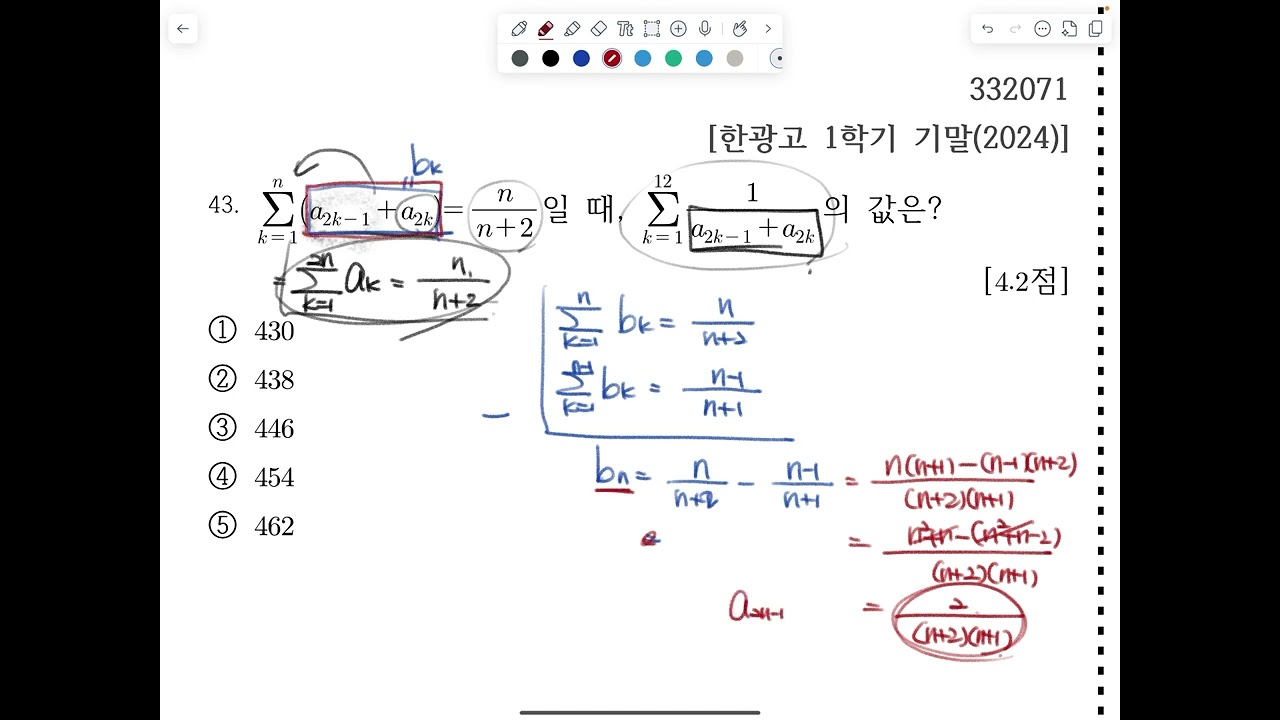 332071
[한광고 1학기 기말(2024)]
bₖ
"
43. \sum_{k=1}^{n} (a_{2k-1} + a_{2k}) = \frac{n}{n+2} 일 때, \sum_{k=1}^{12} \frac{1}{a_{2k-1} + a_{2k}} 의 값은?
= \sum_{k=1}^{2n} a_k = \frac{n}{n+2}
[4.2점]
① 430
② 438
③ 446
④ 454
⑤ 462
\sum_{k=1}^{n} b_k = \frac{n}{n+2}
- \sum_{k=1}^{n-1} b_k = \frac{n-1}{n+1}
b_n = \frac{n}{n+2} - \frac{n-1}{n+1} = \frac{n(n+1)-(n-1)(n+2)}{(n+2)(n+1)}
= \frac{n^2+n-(n^2+n-2)}{(n+2)(n+1)}
a_{2n-1} = \frac{2}{(n+2)(n+1)}